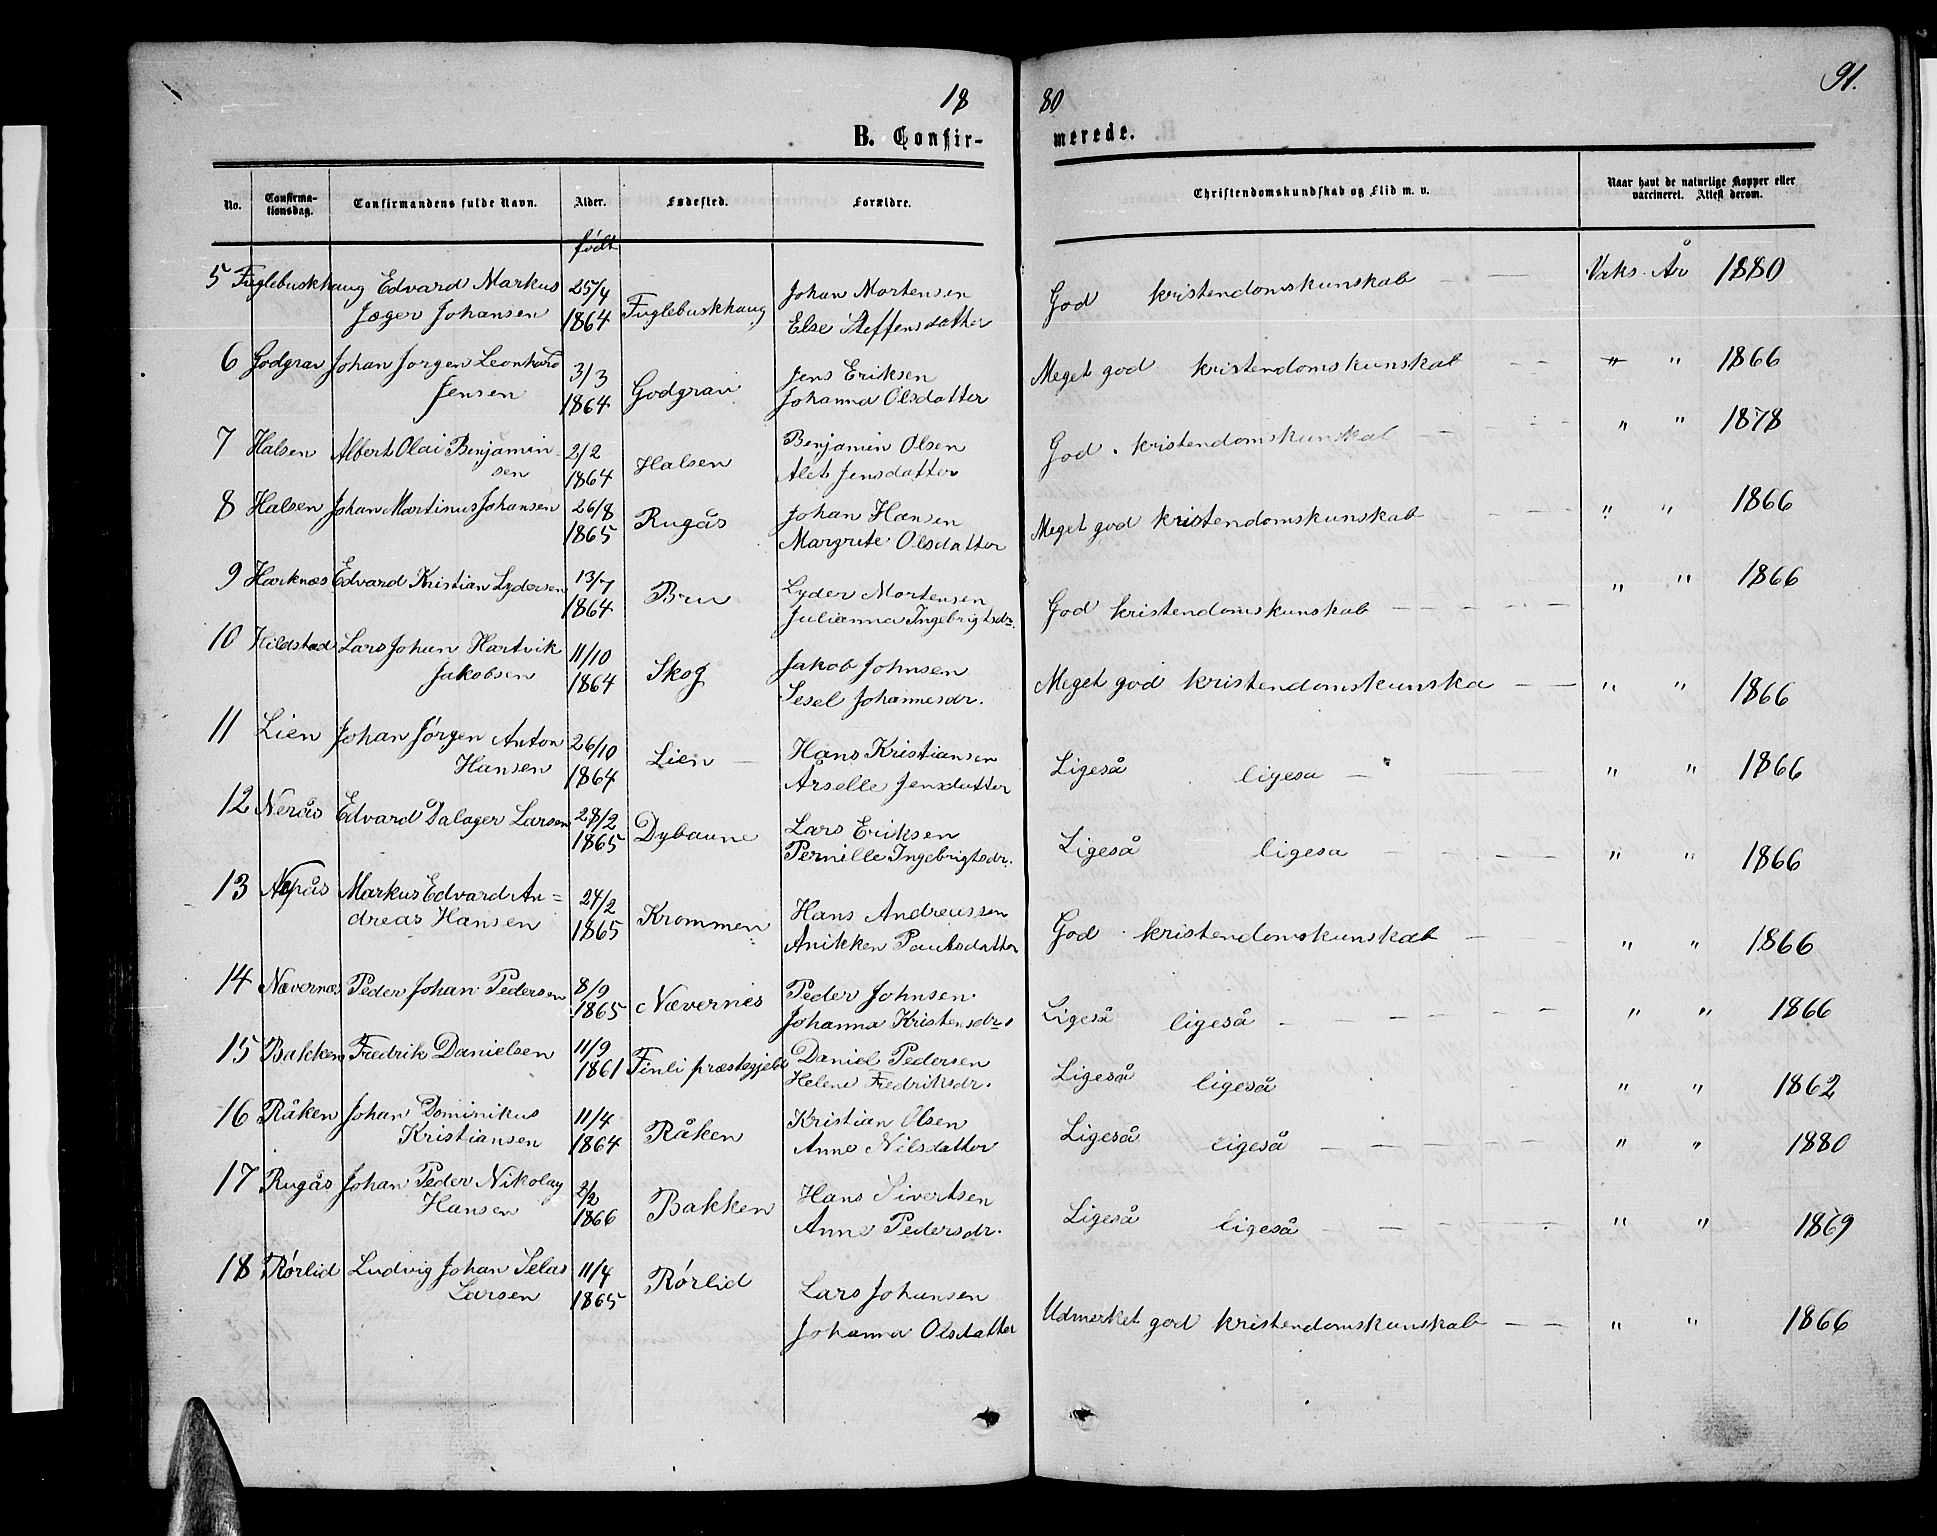 91.
18 80
B. Confir- merede.
No. Confirma-tionsdag. Confirmandens fulde Navn. Alder. Fødested. Forældre. Christendomskundskab og Flid m. v. Naar havt de naturlige Kopper eller vaccineret. Attest derom.
født
5 Fuglebuskhaug Edvard Markus 25/4 Johan Mortensen Vaks. År 1880
Jæger Johansen 1864 Fuglebuskhaug Else Steffensdatter God kristendomskunskab
6 Godgrav Johan Jørgen Leonhard 3/3 Jens Eriksen Meget god kristendomskunskab " " 1866
Jensen 1864 Godgrav Johanna Olsdatter
7 Halsen Albert Olai Benjamin- 2/2 Benjamin Olsen God kristendomskunskab " " 1878
sen 1864 Halsen Alet Jensdatter
8 Halsen Johan Martinus Johansen 26/8 Johan Hansen Meget god kristendomskunskab " " 1866
1865 Rugås Margrete Olsdatter
9 Harknæs Edvard Kristian Lydersen 13/7 Lyder Mortensen " " 1866
1864 Bru Julianna Ingebrigtsdr. God kristendomskunskab
10 Kildstad Lars Johan Hartvik 11/10 Jakob Johnsen
Jakobsen 1864 Skog Sesel Johannesdr. Meget god kristendomskunska " " 1866
11 Lien Johan Jørgen Anton 26/10 Hans Kristiansen
Hansen 1864 Lien Årselle Jensdatter Ligeså ligesa " " 1866
12 Nerås Edvard Dalager Larsen 28/2 Lars Eriksen
1865 Dybaune Pernille Ingebrigtsdr. Ligeså ligesa " " 1866
13 Nepås Markus Edvard An= 24/2 Hans Andreassen
dreas Hansen 1865 Krommen Anikken Paulsdatter God kristendomskunskab " " 1866
14 Nævernæs Peder Johan Pedersen 8/9 Peder Johnsen
1865 Nævernes Johanna Kristensdr. Ligeså ligeså " " 1866
15 Bakken Fredrik Danielsen 11/9 Daniel Pedersen
1861 Finli præstegjeld Helene Fredriksdr. Ligeså ligeså " " 1862
16 Råken Johan Dominikus 11/4 Kristian Olsen
Kristiansen 1864 Råken Anne Nilsdatter Ligeså ligeså " " 1880
17 Rugås Johan Peder Nikolay 2/2 Hans Sivertsen
Hansen 1866 Bakken Anne Pedersdr. Ligeså ligeså " " 1869
18 Rørlid Ludvig Johan Selas 11/4
Larsen 1865 Rørlid Lars Johansen
Johanna Olsdatter Udmerket god kristendomskunskab " " 1866